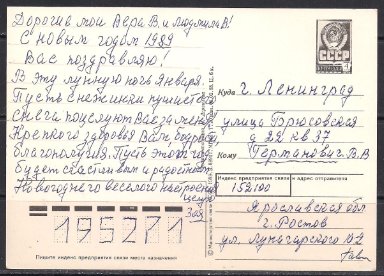 Дорогие мои Вера В. и Людмила В!
С новым годом 1989
Вас поздравляю!
В эту лунную ночь Января.
Пусть снежинки пушистые
снега поцелуют Вас за меня
Крепкого здоровья Вам бодрости
благополучия. Пусть этот год
будет счастливым и радостным
Новогоднего веселого настроения
целую
Зая
СССР
Куда г. Ленинград
улица Брюсовская
д 22 кв 37
Кому Германович В.В
Индекс предприятия связи и адрес отправителя
152100
Ярославская обл
г. Ростов
ул. Луначарского
195271
Пишите индекс предприятия связи места назначения